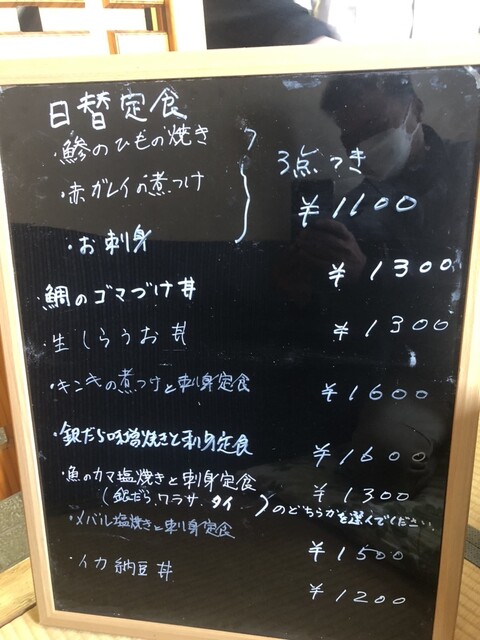 日替定食
・鯵のひもの焼き
・赤ガレイの煮つけ
・お刺身
3点つき
¥1100
鯛のゴマづけ丼 ¥1300
・生しらうお丼 ¥1300
・キンキの煮つけと刺身定食 ¥1600
・銀だら味噌焼きと刺身定食 ¥1600
・魚のカマ塩焼きと刺身定食 ¥1300
(銀だら、ワラサ、タイ)のどちらかを選んでください。
・メバル塩焼きと刺身定食 ¥1500
・イカ納豆丼 ¥1200